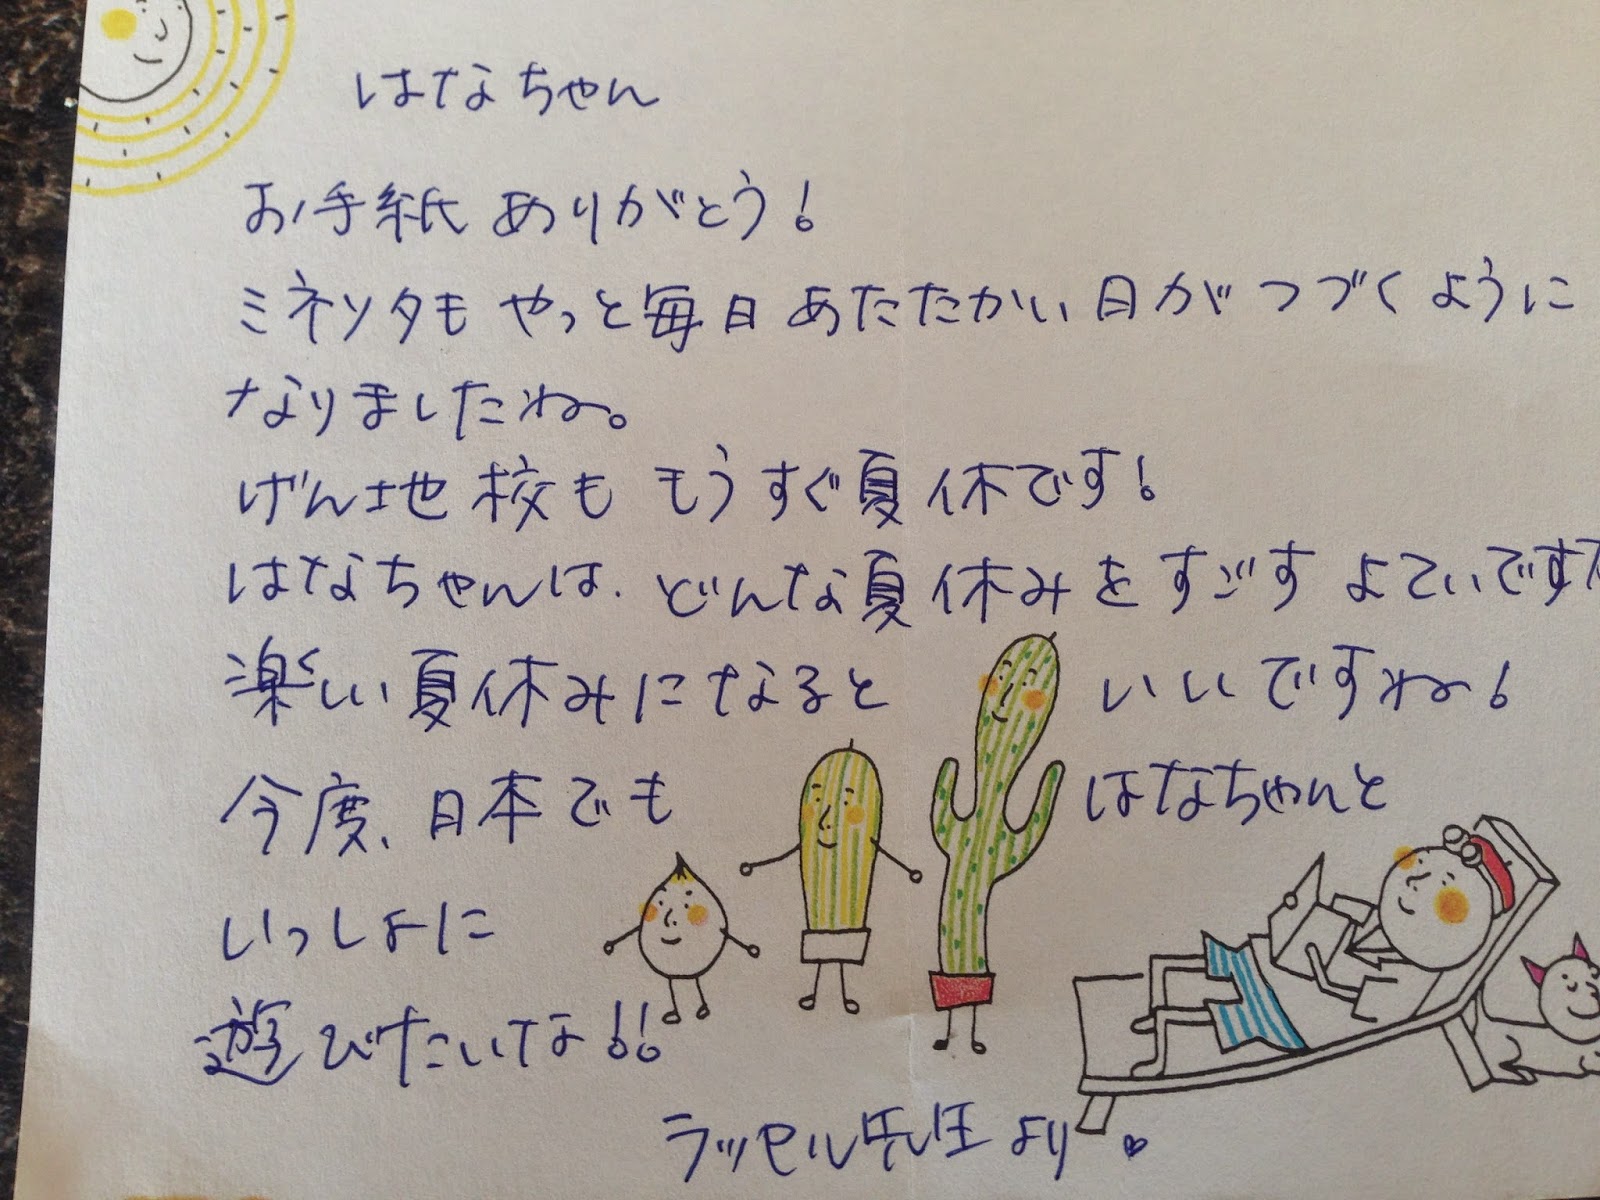 はなちゃん
お手紙ありがとう!
ミネソタもやっと毎日あたたかい日がつづくように
なりましたね。
げん地校ももうすぐ夏休です!
はなちゃんは、どんな夏休みをすごすよていですか
楽しい夏休みになるといいですね!
今度、日本でもはなちゃんと
いっしょに
遊びたいな!!
ラッセル先生より♥